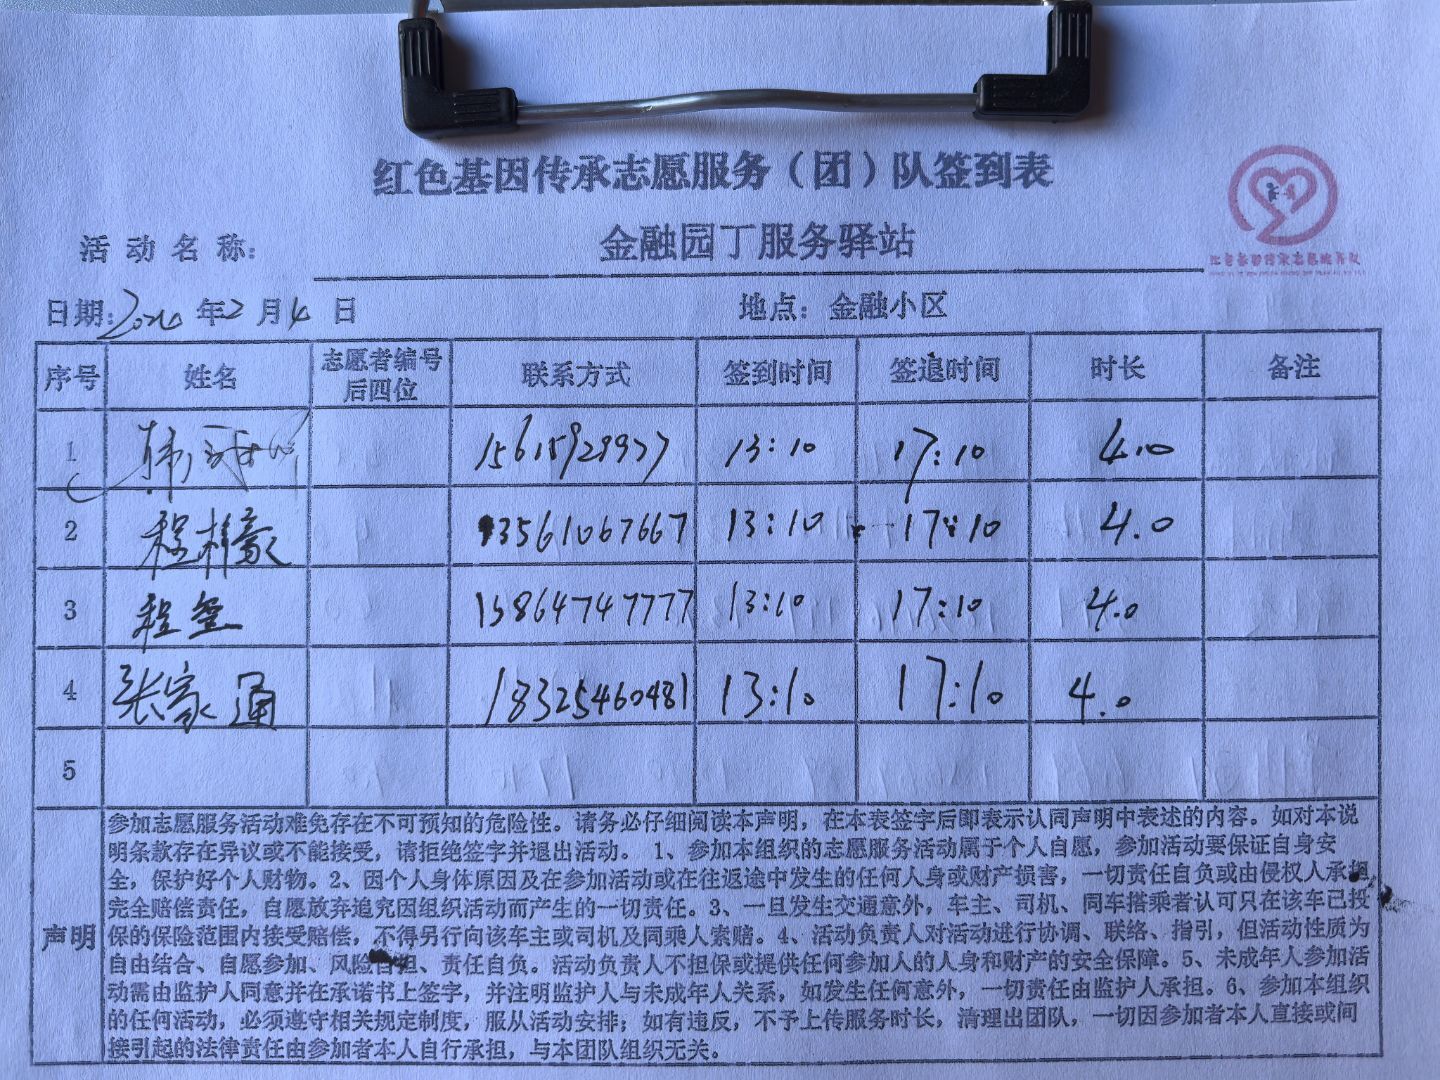 红色基因传承志愿服务（团）队签到表
活动名称： 金融园丁服务驿站
日期： 年2月4日 地点：金融小区
序号 姓名 志愿者编号后四位 联系方式 签到时间 签退时间 时长 备注
1 韩 13:10 17:10 4.0
2 程相豪 13561067667 13:10 17:10 4.0
3 程奎 15864747777 13:10 17:10 4.0
4 张家通 18325460481 13:10 17:10 4.0
5
声明
参加志愿服务活动难免存在不可预知的危险性。请务必仔细阅读本声明，在本表签字后即表示认同声明中表述的内容。如对本说
明条款存在异议或不能接受，请拒绝签字并退出活动。 1、参加本组织的志愿服务活动属于个人自愿，参加活动要保证自身安
全，保护好个人财物。2、因个人身体原因及在参加活动或在往返途中发生的任何人身或财产损害，一切责任自负或由侵权人承担
完全赔偿责任，自愿放弃追究因组织活动而产生的一切责任。3、一旦发生交通意外，车主、司机、同车搭乘者认可只在该车已投
保的保险范围内接受赔偿，不得另行向该车主或司机及同乘人索赔。4、活动负责人对活动进行协调、联络、指引，但活动性质为
自由结合、自愿参加、风险自担、责任自负。活动负责人不担保或提供任何参加人的人身和财产的安全保障。5、未成年人参加活
动需由监护人同意并在承诺书上签字，并注明监护人与未成年人关系，如发生任何意外，一切责任由监护人承担。6、参加本组织
的任何活动，必须遵守相关规定制度，服从活动安排；如有违反，不予上传服务时长，清理出团队，一切因参加者本人直接或间
接引起的法律责任由参加者本人自行承担，与本团队组织无关。